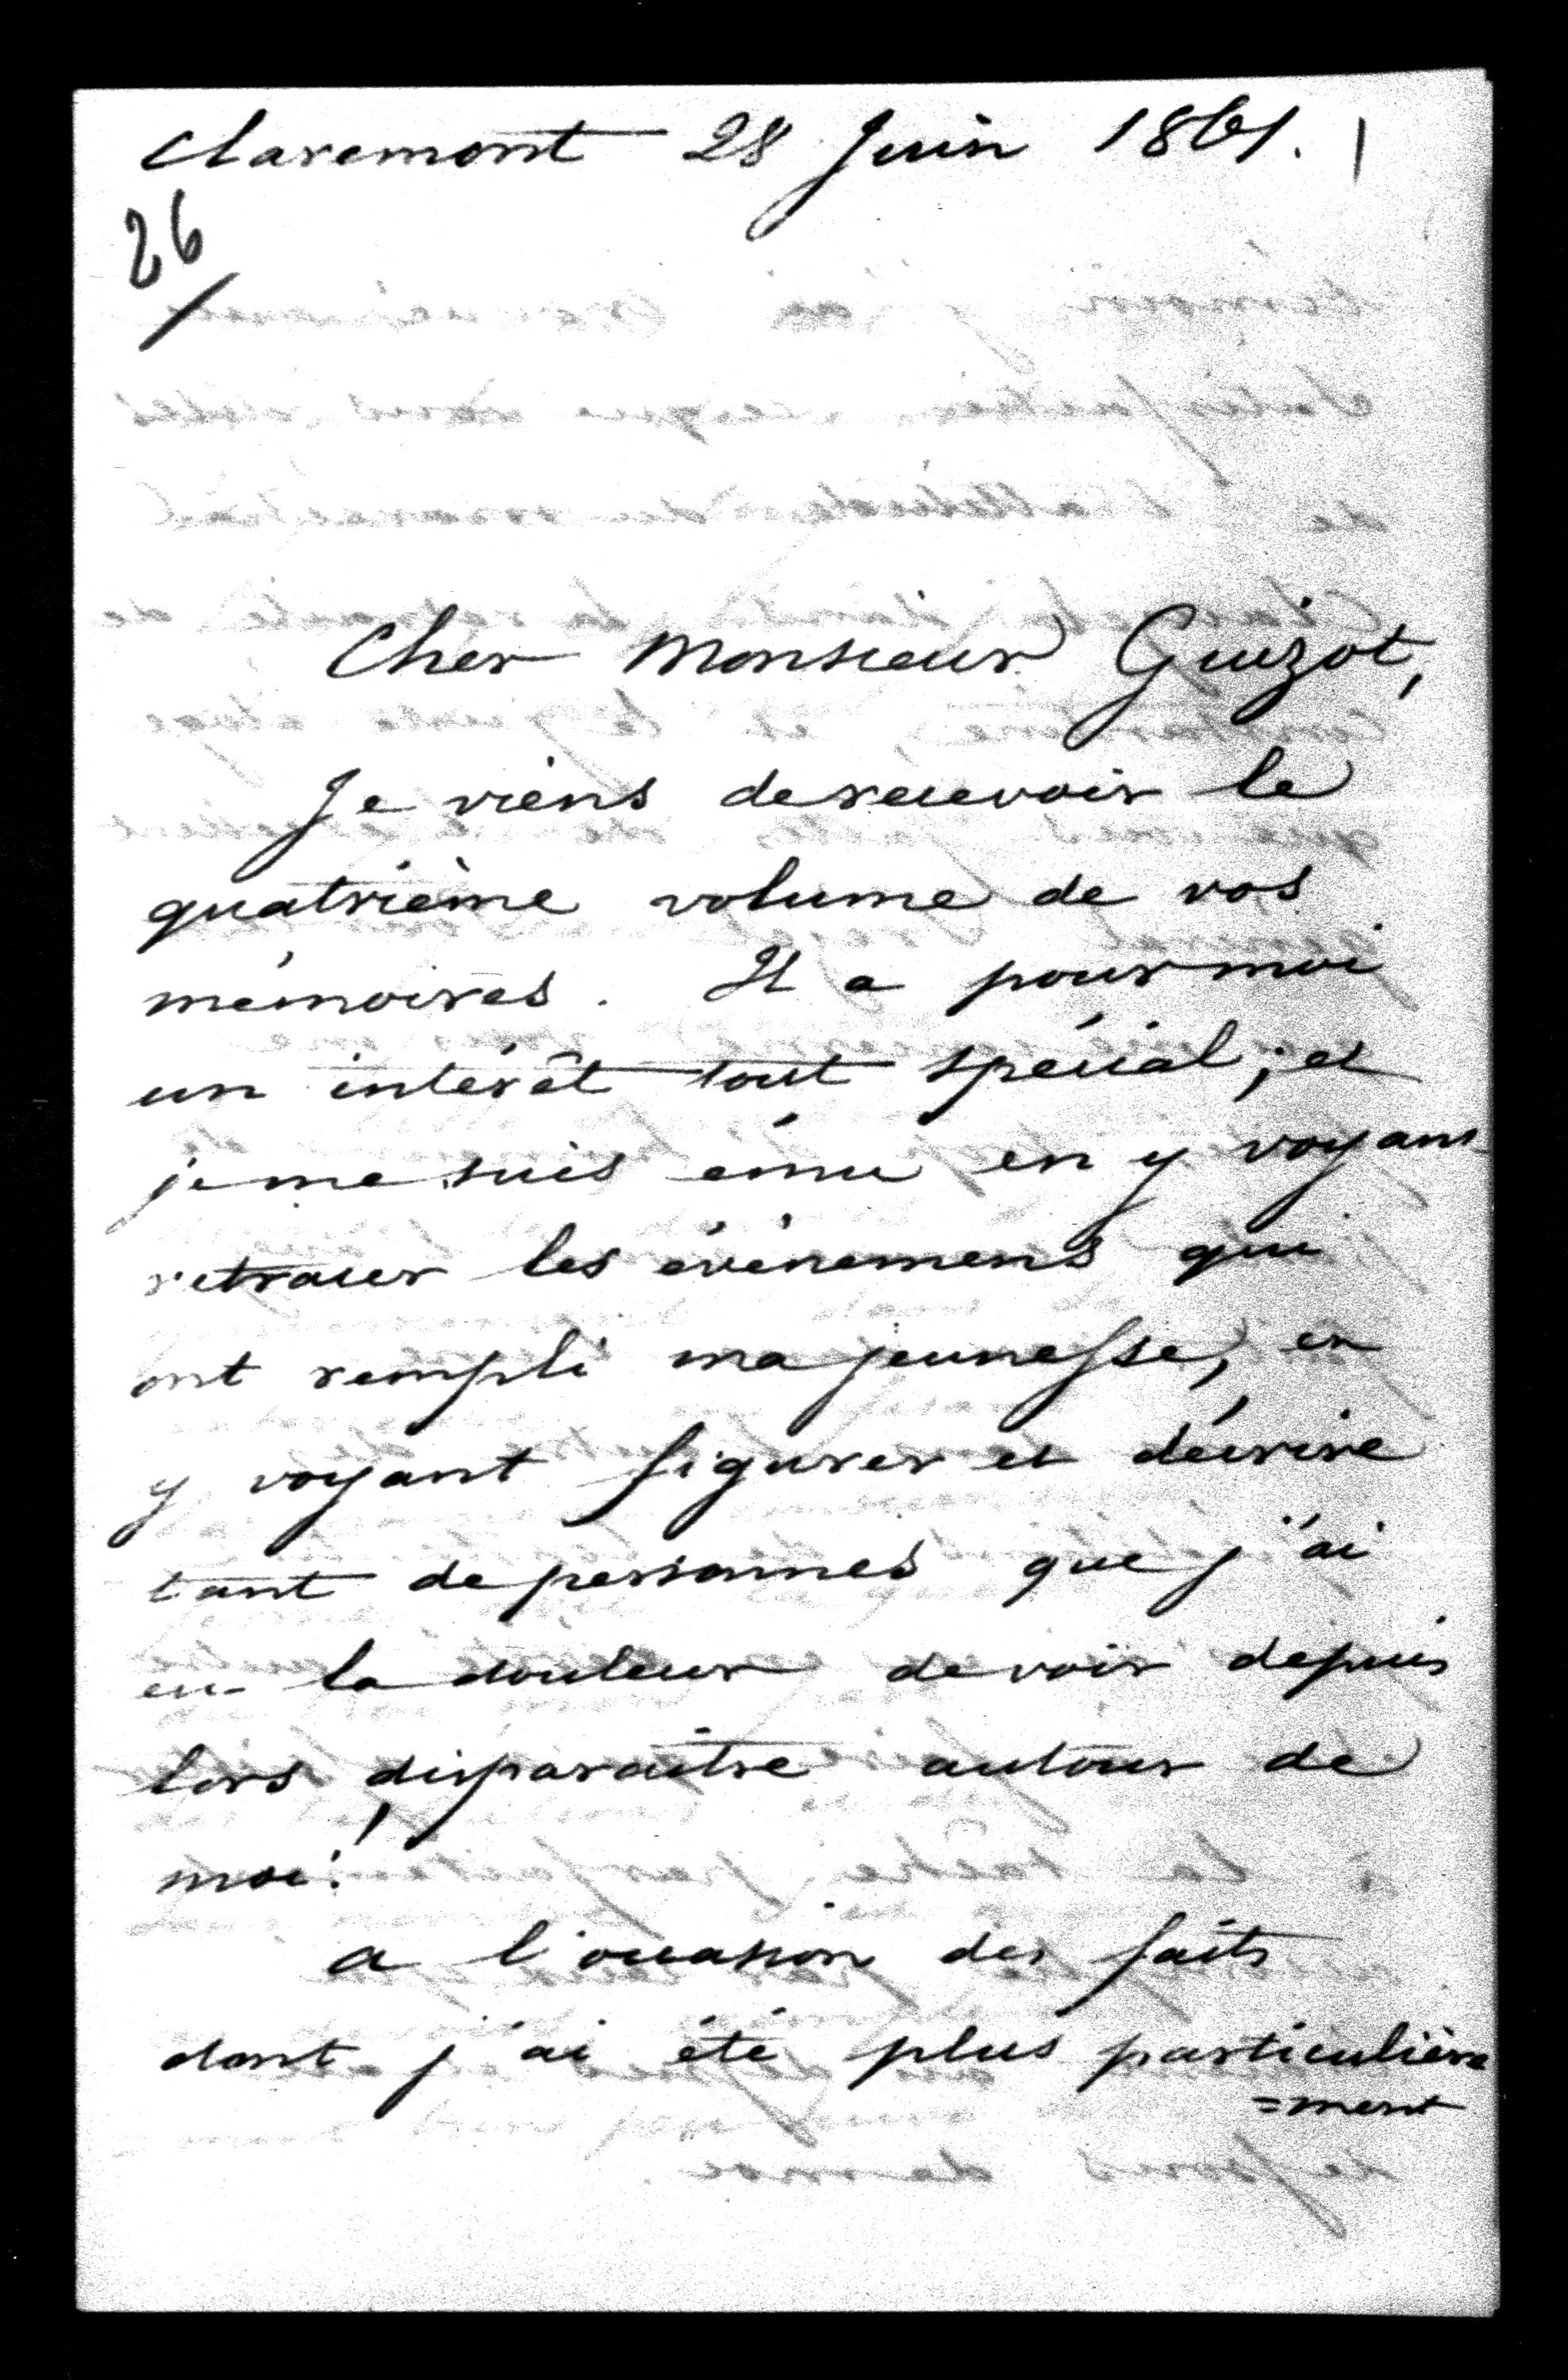 Claremont 28 Juin 1861. 1
26
Cher Monsieur Guizot,
Je viens de recevoir le
quatrième volume de vos
mémoires. Il a pour moi
un intérêt tout spécial; et
je me suis ému en y voyant
retracer les événemens qui
ont rempli ma jeunesse, en
y voyant figurer et décrire
tant de personnes que j'ai
eu la douleur de voir depuis
lors disparaître autour de
moi!
a l'occasion des faits
dont j'ai été plus particulière
=ment